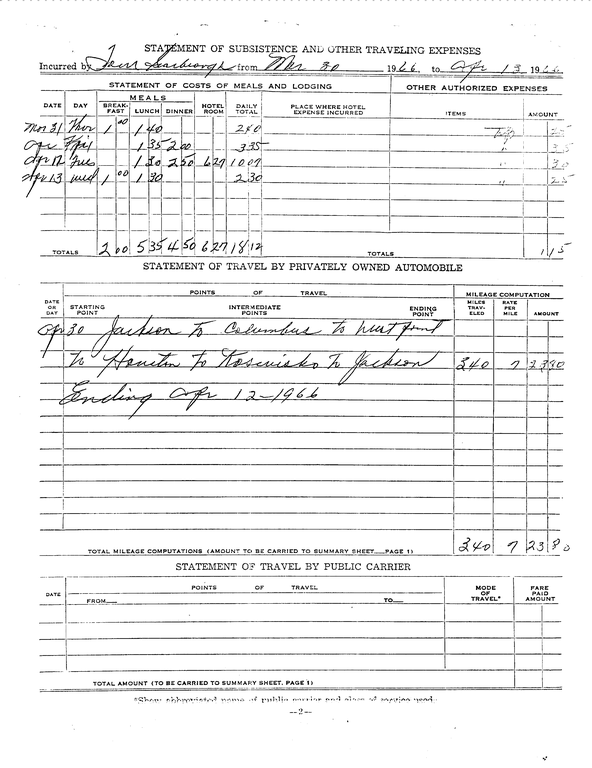 STATEMENT OF SUBSISTENCE AND OTHER TRAVELING EXPENSES
Incurred by Scarbrough from Mar 30 1966 to Apr 13 1966
STATEMENT OF COSTS OF MEALS AND LODGING OTHER AUTHORIZED EXPENSES
MEALS
DATE DAY BREAK-FAST LUNCH DINNER HOTEL ROOM DAILY TOTAL PLACE WHERE HOTEL EXPENSE INCURRED ITEMS AMOUNT
Mar 31 Thur 1 00 1 40 2 40
Apr 1 Fri 1 35 2 00 3 35 "
Apr 12 Tues 1 30 2 50 6 27 10 07 " 30
Apr 13 Wed 1 00 1 30 2 30 " 25
TOTALS 2 00 5 35 4 50 6 27 18 12 TOTALS 1 15
STATEMENT OF TRAVEL BY PRIVATELY OWNED AUTOMOBILE
POINTS OF TRAVEL MILEAGE COMPUTATION
DATE OR DAY STARTING POINT INTERMEDIATE POINTS ENDING POINT MILES TRAV-ELED RATE PER MILE AMOUNT
30 Jackson to Columbus to West Point
to Houston to Kosciusko to Jackson 340 7 23 80
Ending Apr 12-1966
TOTAL MILEAGE COMPUTATIONS (AMOUNT TO BE CARRIED TO SUMMARY SHEET—PAGE 1) 340 7 23 80
STATEMENT OF TRAVEL BY PUBLIC CARRIER
DATE POINTS OF TRAVEL MODE OF TRAVEL* FARE PAID AMOUNT
FROM— TO—
TOTAL AMOUNT (TO BE CARRIED TO SUMMARY SHEET, PAGE 1)
*Show abbreviated name of public carrier and class of service used.
—2—